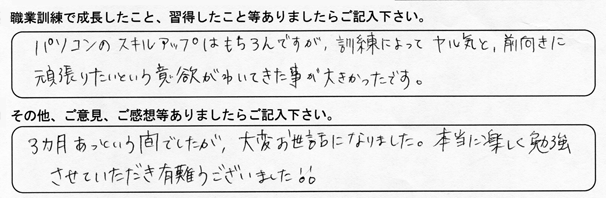 職業訓練で成長したこと、習得したこと等ありましたらご記入下さい。
パソコンのスキルアップはもちろんですが、訓練によってヤル気と、前向きに
頑張りたいという意欲がわいてきた事が大きかったです。
その他、ご意見、ご感想等ありましたらご記入下さい。
3カ月あっという間でしたが、大変お世話になりました。本当に楽しく勉強
させていただき有難うございました!!